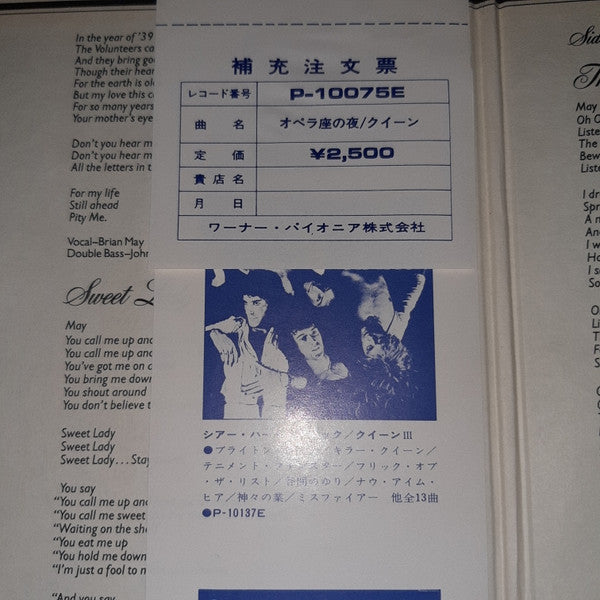 In the year of '39
The Volunteers
And they bring
Though their
For the earth is
But my love this
For so many years
Your mother's eyes
Don't you hear
Don't you hear
All the letters in
For my life
Still ahead
Pity Me.
Vocal–Brian May
Double Bass–John
Sweet
May
You call me up and
You call me up and
You've got me on
You bring me down
You shout around
You don't believe
Sweet Lady
Sweet Lady
Sweet Lady... Stay
You say
"You call me up and
"You call me sweet
"Waiting on the
"You eat me up
"You hold me down
"I'm just a fool to
"And you say
補充注文票
レコード番号 P-10075E
曲名 オペラ座の夜/クイーン
定価 ¥2,500
貴店名
月日
ワーナー・パイオニア株式会社
シアー・ハー ック/クイーンIII
●ブライトン キラー・クイーン/
テニメント・ スター/フリック・オブ
・ザ・リスト/谷間のゆり/ナウ・アイム・
ヒア/神々の業/ミスファイアー 他全13曲
●P-10137E
May
Oh
The